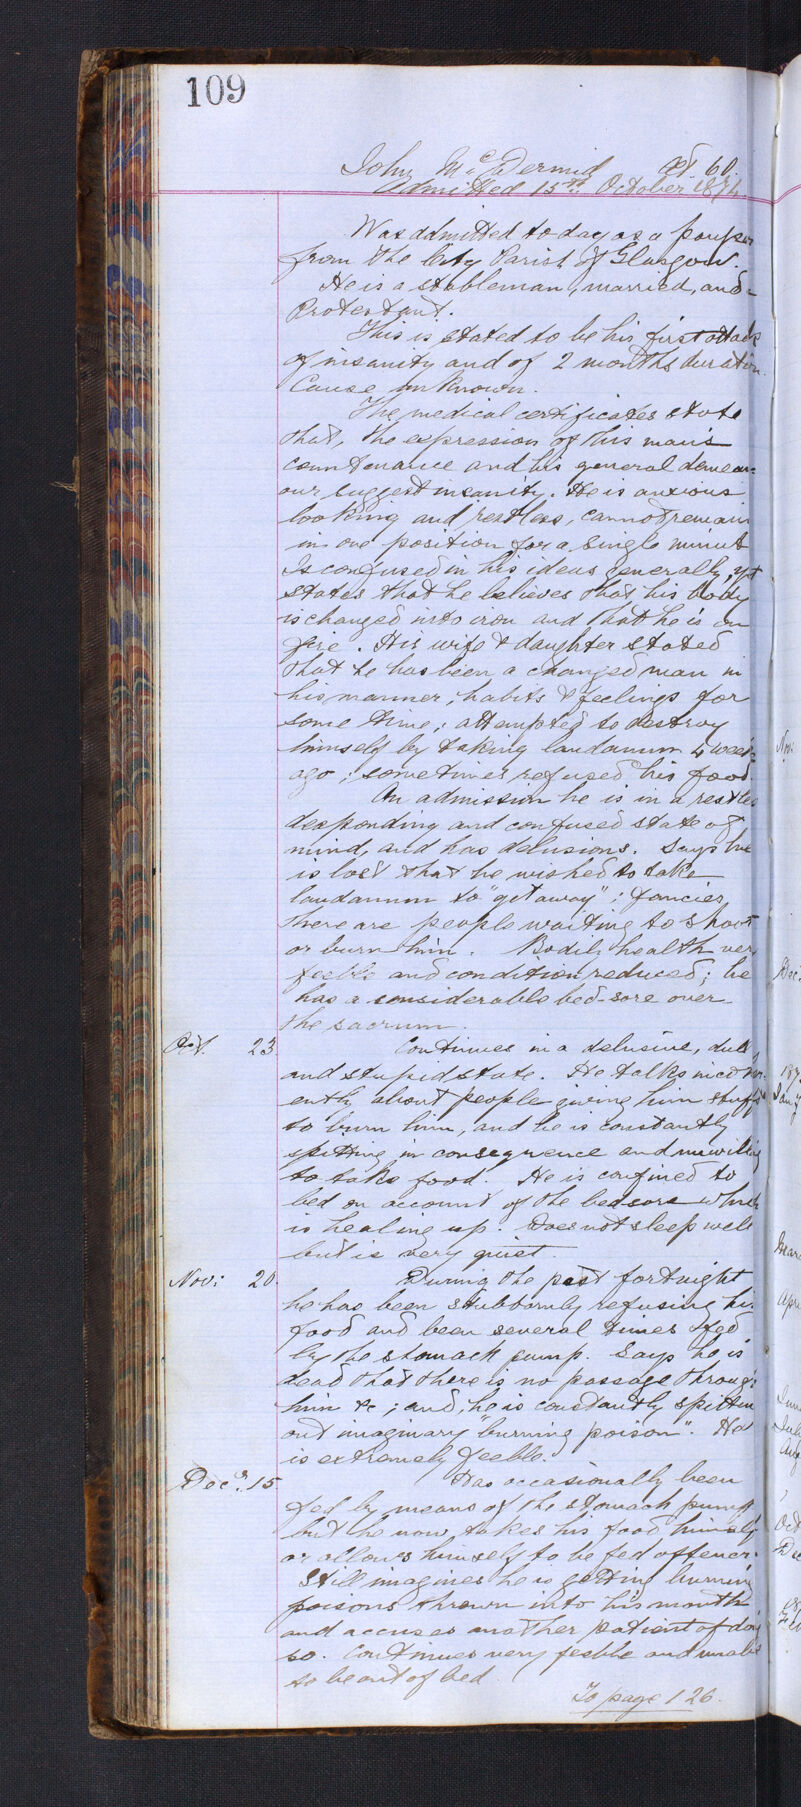 109
John McDermid æt. 60.
Admitted 15th October 1874.
Was admitted to day as a pauper
from the City Parish of Glasgow.
He is a stableman, married, and
Protestant.
This is stated to be his first attack
of insanity and of 2 months duration.
Cause unknown.
The medical certificates state
that, the expression of this man's
countenance and his general demean=
our suggest insanity. He is anxious
looking and restless, cannot remain
in one position for a single minute
Is confused in his ideas generally, yet
states that he believes that his body
is changed into iron and that he is on
fire. His wife & daughter stated
that he has been a changed man in
his manner, habits & feelings for
some time; attempted to destroy
himself by taking laudanum 4 weeks
ago; sometimes refused his food.
On admission he is in a restless
desponding and confused state of
mind, and has delusions. Says he
is lost that he wished to take
laudanum to "get away"; fancies
there are people waiting to shoot
or burn him. Bodily health very
feeble and condition reduced; he
has a considerable bed-sore over
the sacrum.
Oct. 23. Continues in a delusive, dull
and stupid state. He talks incoher-
ently about people giving him stuff
to burn him, and he is constantly
spitting in consequence and unwilling
to take food. He is confined to
bed on account of the bedsore which
is healing up. Does not sleep well
but is very quiet.
Nov: 20. During the past fortnight
he has been stubbornly refusing his
food and been several times fed
by the stomach pump. Says he is
dead that there is no passage through
him &c; and, he is constantly spitting
out imaginary "burning poison". He
is extremely feeble.
Decr. 15 Has occasionally been
fed by means of the stomach pump
but he now takes his food himself
or allows himself to be fed oftener.
Still imagines he is getting burning
poisons thrown into his mouth
and accuses another patient of doing
so. Continues very feeble and unable
to be out of bed.
To page 126.